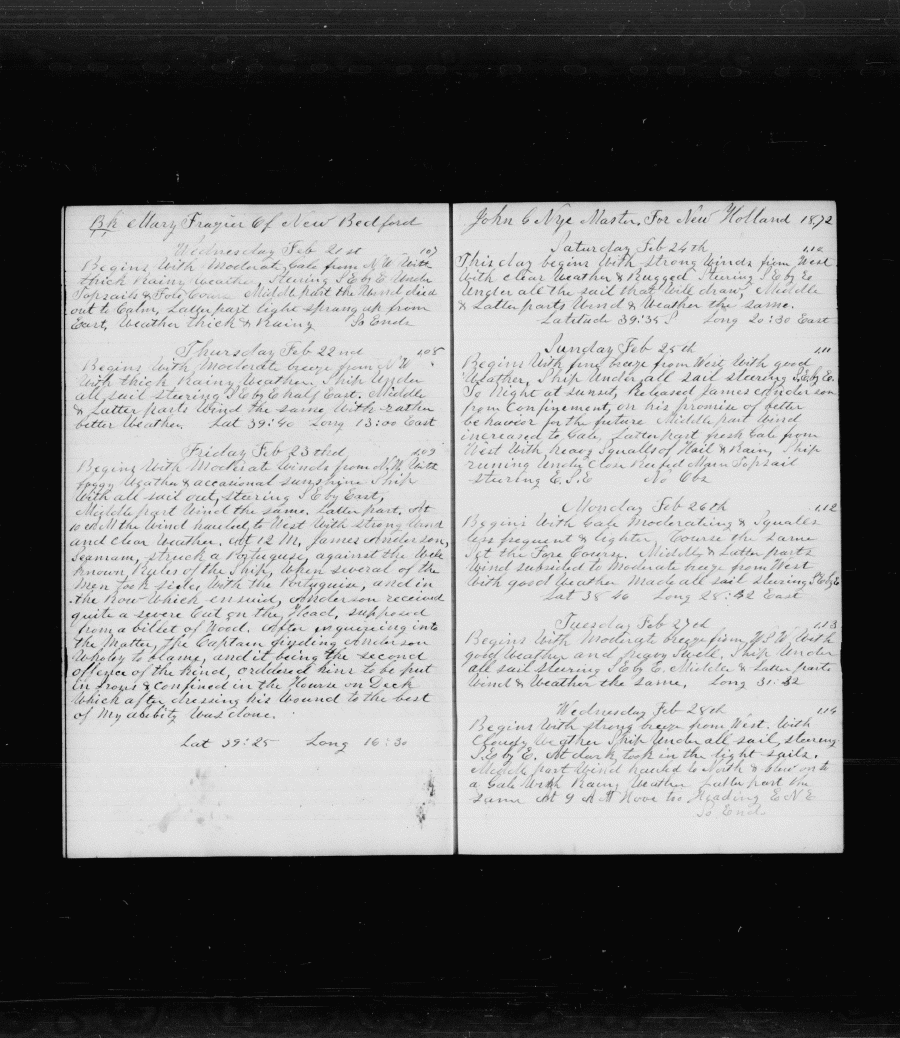 Bk Mary Frazier Of New Bedford
Wednesday Feb 21st 107
Begins With Moderate Gale from N.W. With
thick Rainy Weather, Steering S E by E Under
Topsails & Fore Course Middle part the Wind died
out to Calm, Latter part light sprang up from
East, Weather thick & Rainy So Ends
Thursday Feb 22nd 108
Begins With Moderate breeze from N W
With thick Rainy Weather. Ship Under
all sail steering S E by E half East. Middle
& Latter parts Wind the same With rather
better Weather. Lat 39:40 Long 13:00 East
Friday Feb 23rd 109
Begins With Moderate Winds from N.W. With
foggy Weather & accasional sunshine Ship
With all sail out, steering S E by East,
Middle part Wind the same. Latter part. At
10 AM the Wind hauled to West With strong Wind
and clear Weather. At 12 M, James Anderson,
Seaman, struck a Portuguse, against the Well
Known Rules of the Ship, When several of the
Men took sides, With the Portuguise, and in
the Row Which ensuid, Anderson received
quite a severe Cut on the Head, supposed
from a billet of Wood. After inquireing into
the Matter, the Captain finding Anderson
Wholey to blame, and it being the second
offence of the Kind, orddered him to be put
in Irons & Confined in the House on Deck
Which after dressing his Wound to the best
of My ability Was done.
Lat 39:25 Long 16:30
John C Nye Master. For New Holland 1872
Saturday Feb 24th 110
This day begins With strong Winds from West
With clear Weather & Rugged Steering S E by E
Under all the sail that Will draw, Middle
& Latter parts, Wind & Weather the same.
Latitude 39:35 S Long 20:30 East
Sunday Feb 25th 111
Begins With fine breeze from West With good
Weather, Ship Under all sail steering S.E. by E.
To Night at sunset, Released James Anderson
from Confinement, on his promise of better
behavior for the future Middle part Wind
increased to Gale, Latter part fresh Gale from
West With heavy Squalls of Hail & Rain, Ship
runing Under Close Reefed Main Topsail
steering E.S.E No Obs
Monday Feb 26th 112
Begins With Gale Moderating & Squalls
less frequent & lighter, Course the same
Set the Fore Course. Middle & Latter parts
Wind subsided to Moderate breeze from West
With good Weather Made all sail steering S E by E
Lat 38 46 Long 28:32 East
Tuesday Feb 27th 113
Begins With Moderate breeze from W.S.W. With
good Weather and heavy Swell, Ship Under
all sail steering S E by E Middle & Latter parts
Wind & Weather the same, Long 31:32
Wednesday Feb 28th 114
Begins With strong breeze from West. With
Cloudy Weather Ship Under all sail, steering
S.E. by E. At dark, took in the light sails.
Middle part Wind hauled to North & blew on to
a Gale With Rainy Weather Latter part the
same At 9 A M Hove too Heading E N E
So End